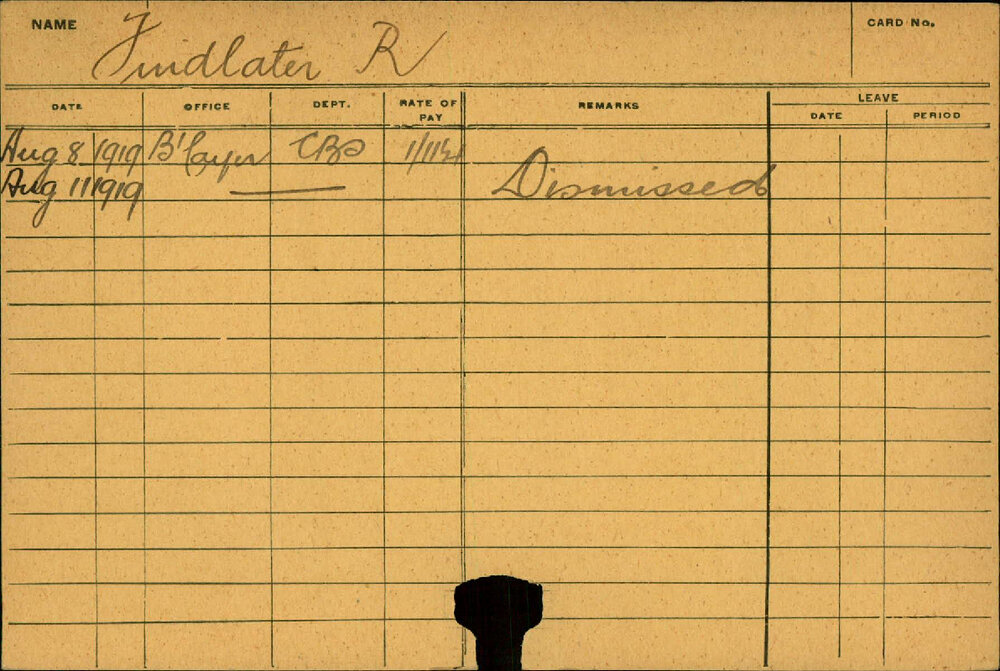 NAME Findlater R CARD No.
DATE OFFICE DEPT. RATE OF PAY REMARKS LEAVE
DATE PERIOD
Aug 8 1919 B'layer CBD 1/11½
Aug 11 1919 Dismissed